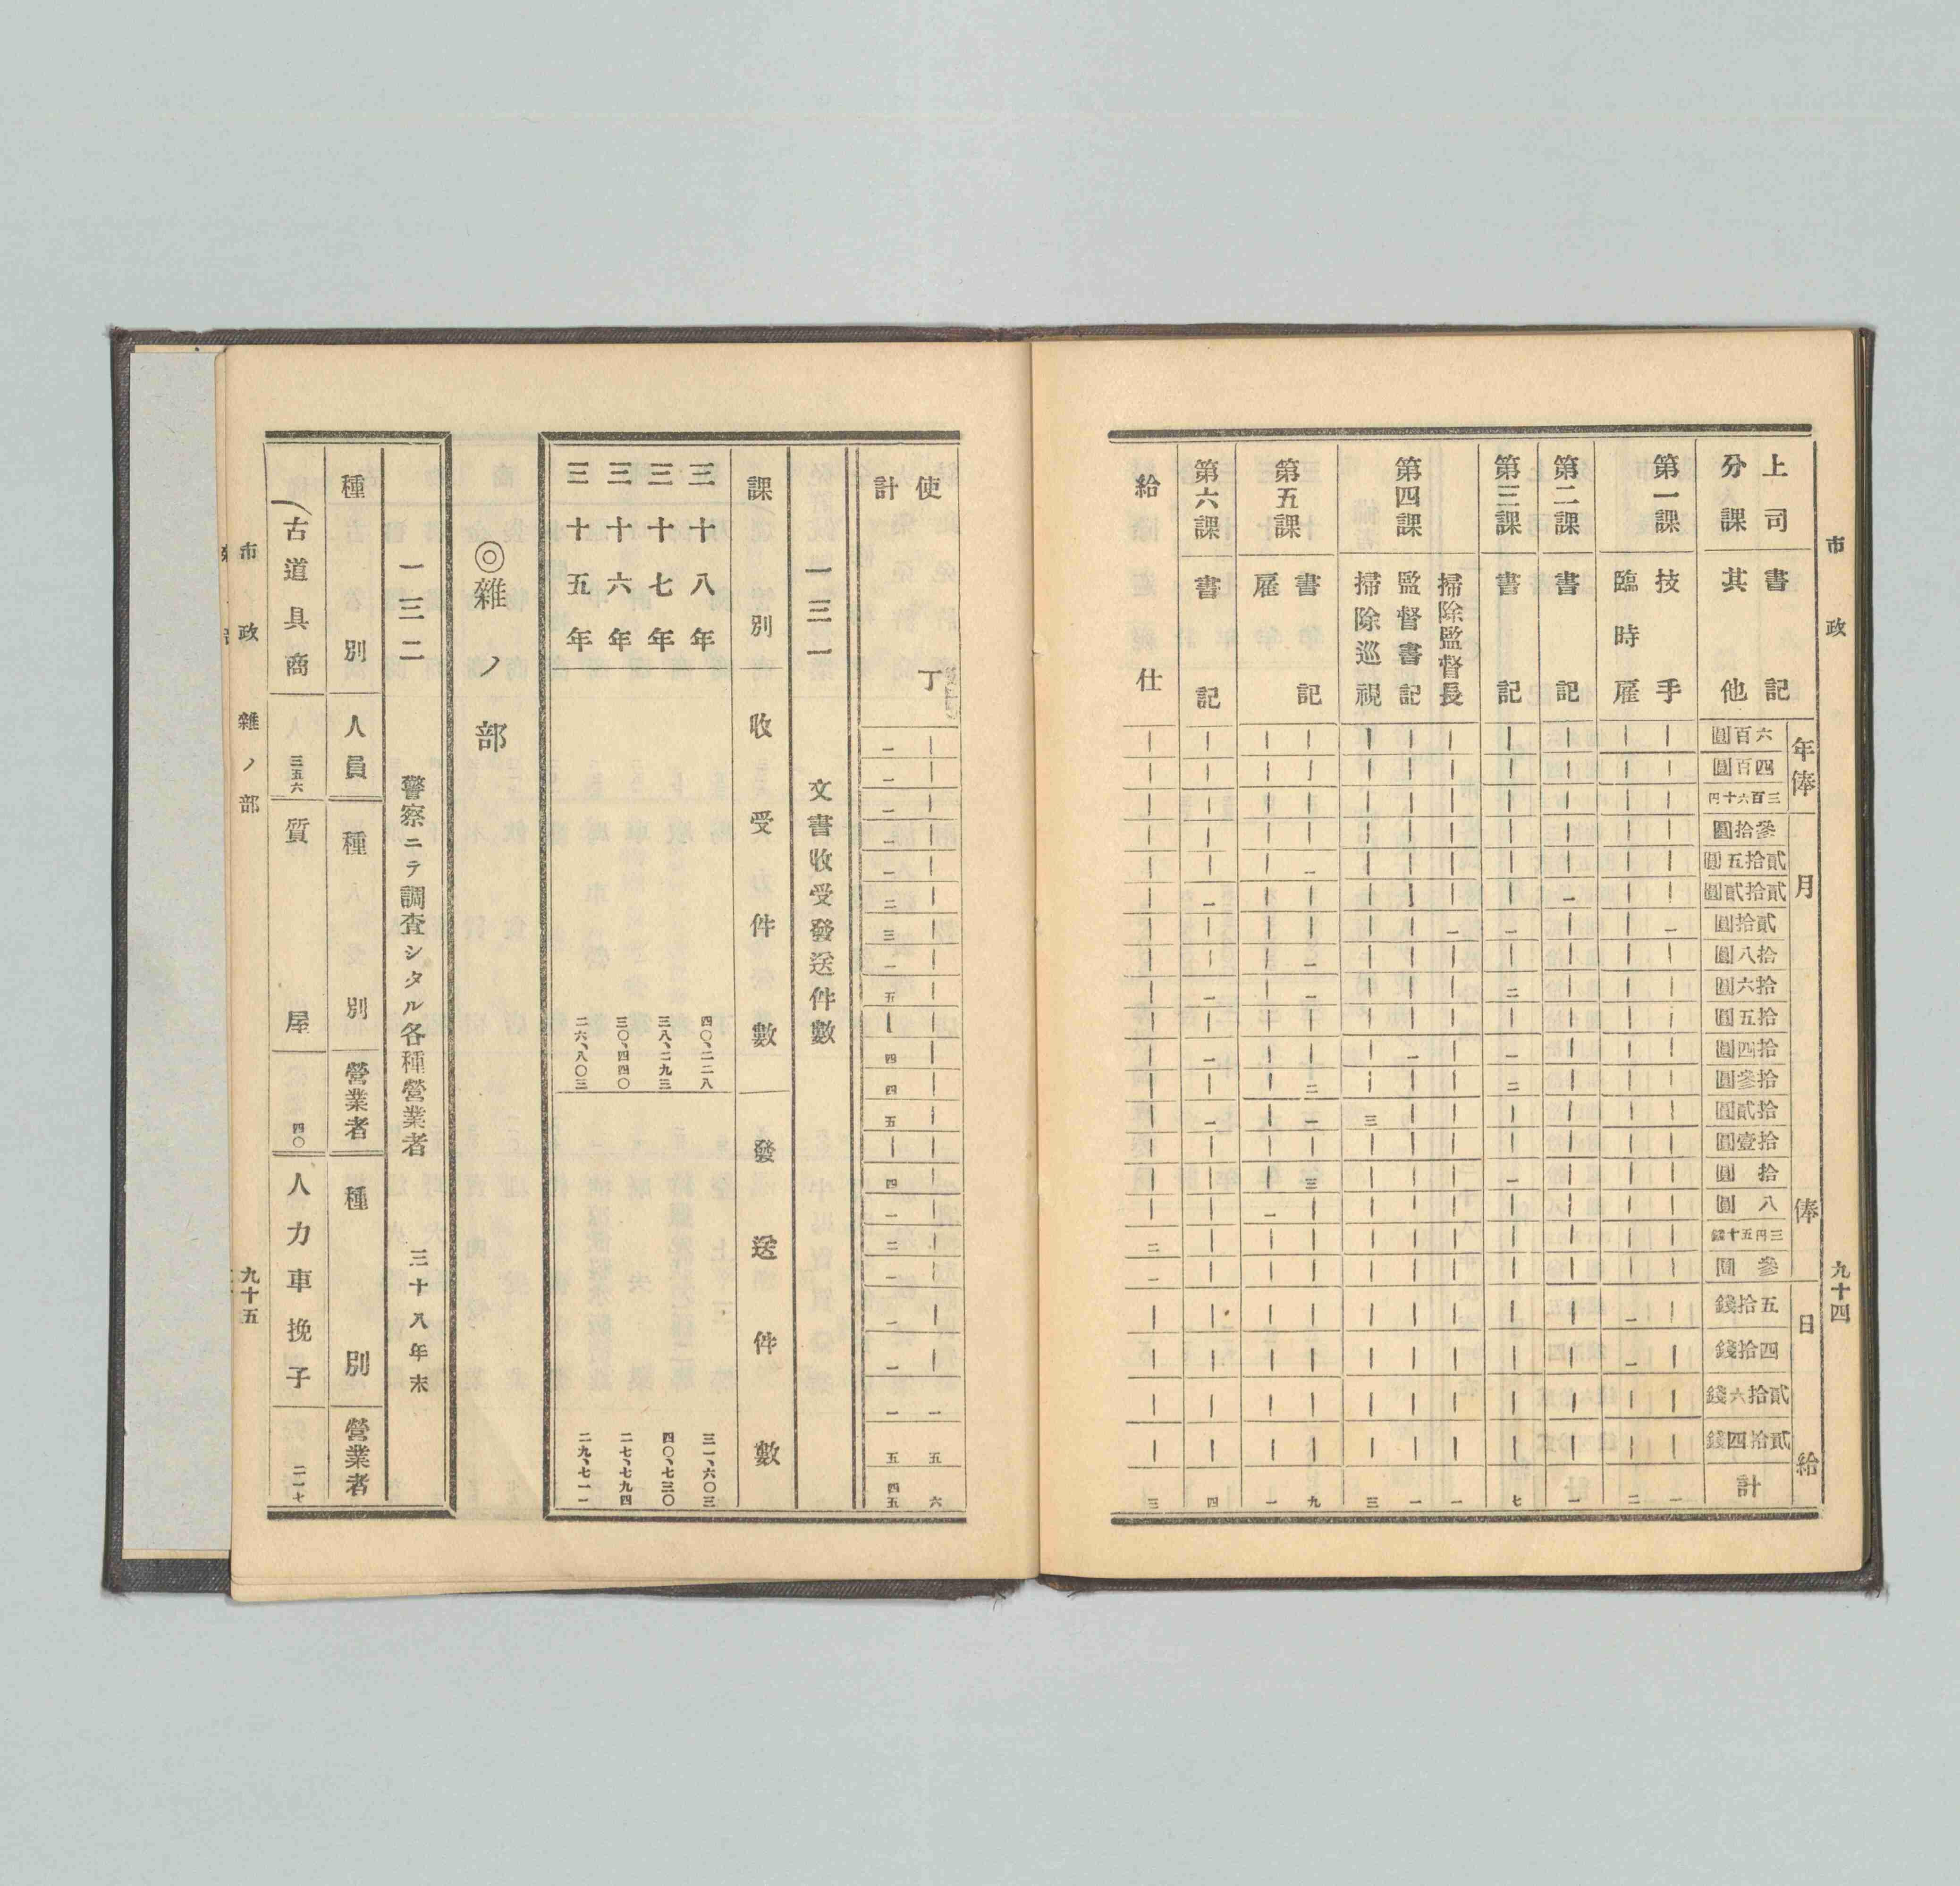 市政
九十四
上司書記
分課其他
年俸
月俸
日給
六百圓
四百圓
三百六十円
參拾圓
貳拾五圓
貳拾貳圓
貳拾圓
拾八圓
拾六圓
拾五圓
拾四圓
拾參圓
拾貳圓
拾壹圓
拾圓
八圓
三円五十錢
參圓
五拾錢
四拾錢
貳拾六錢
貳拾四錢
計
第一課 技手 ｜｜｜｜｜｜一｜｜｜｜｜｜｜｜｜｜｜｜｜｜｜一
臨時雇 ｜｜｜｜｜｜｜｜｜｜｜｜｜｜｜｜｜｜一一｜｜二
第二課 書記 ｜｜｜｜｜一｜｜｜｜｜｜｜｜｜｜｜｜｜｜｜｜一
第三課 書記 ｜｜｜｜｜｜一｜二｜一二｜｜一｜｜｜｜｜｜｜七
第四課 掃除監督長 ｜｜｜｜｜｜一｜｜｜｜｜｜｜｜｜｜｜｜｜｜｜一
監督書記 ｜｜｜｜｜｜｜｜｜｜一｜｜｜｜｜｜｜｜｜｜｜一
掃除巡視 ｜｜｜｜｜｜｜｜｜｜｜｜三｜｜｜｜｜｜｜｜｜三
第五課 書記 ｜｜｜｜一｜｜一｜｜｜二一｜三｜｜｜｜｜｜｜九
雇 ｜｜｜｜｜｜｜｜｜｜｜｜｜｜｜一｜｜｜｜｜｜一
第六課 書記 ｜｜｜｜｜一｜｜一｜一｜一｜｜｜｜｜｜｜｜｜四
給仕 ｜｜｜｜｜｜｜｜｜｜｜｜｜｜｜｜二一｜｜｜｜三
使丁 ｜｜｜｜｜｜｜｜｜｜｜｜｜｜｜｜｜｜｜｜一五六
計 一一一一一二三一五｜四四五｜四一二一一一一五四五
一三一 文書收受發送件數
課別 收受件數 發送件數
三十八年 四〇、二二八 三一、六〇三
三十七年 三八、二九三 四〇、七三〇
三十六年 三〇、四四〇 二七、七九四
三十五年 二六、八〇三 二九、七一一
◎雜ノ部
一三二 警察ニテ調査シタル各種營業者 三十八年末
種別 人員 種別 營業者 種別 營業者
古道具商 三五六 質屋 四〇 人力車挽子 二一七
市政 雜ノ部
九十五